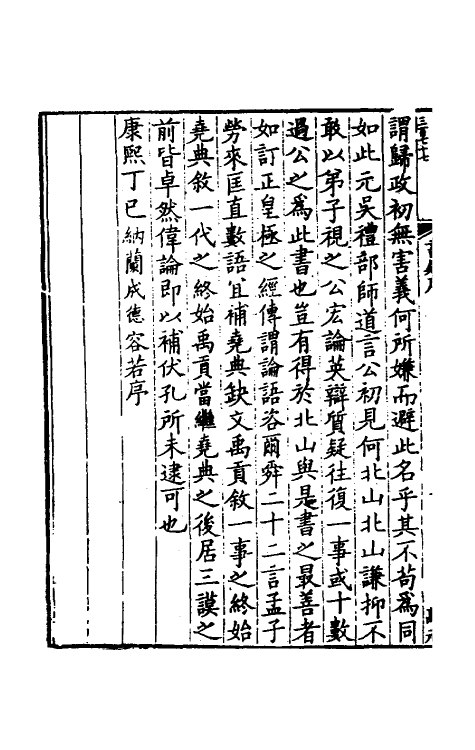 謂歸政初無害義何所嫌而避此名乎其不苟為同
如此元吳禮部師道言公初見何北山北山謙抑不
敢以弟子視之公宏論英辯質疑往復一事或十數
過公之為此書也豈有得於北山與是書之最善者
如訂正皇極之經傳謂論語咨爾舜二十二言孟子
勞來匡直數語宜補堯典缺文禹貢敘一事之終始
堯典敘一代之終始禹貢當繼堯典之後居三謨之
前皆卓然偉論即以補伏孔所未逮可也
康熙丁巳納蘭成德容若序